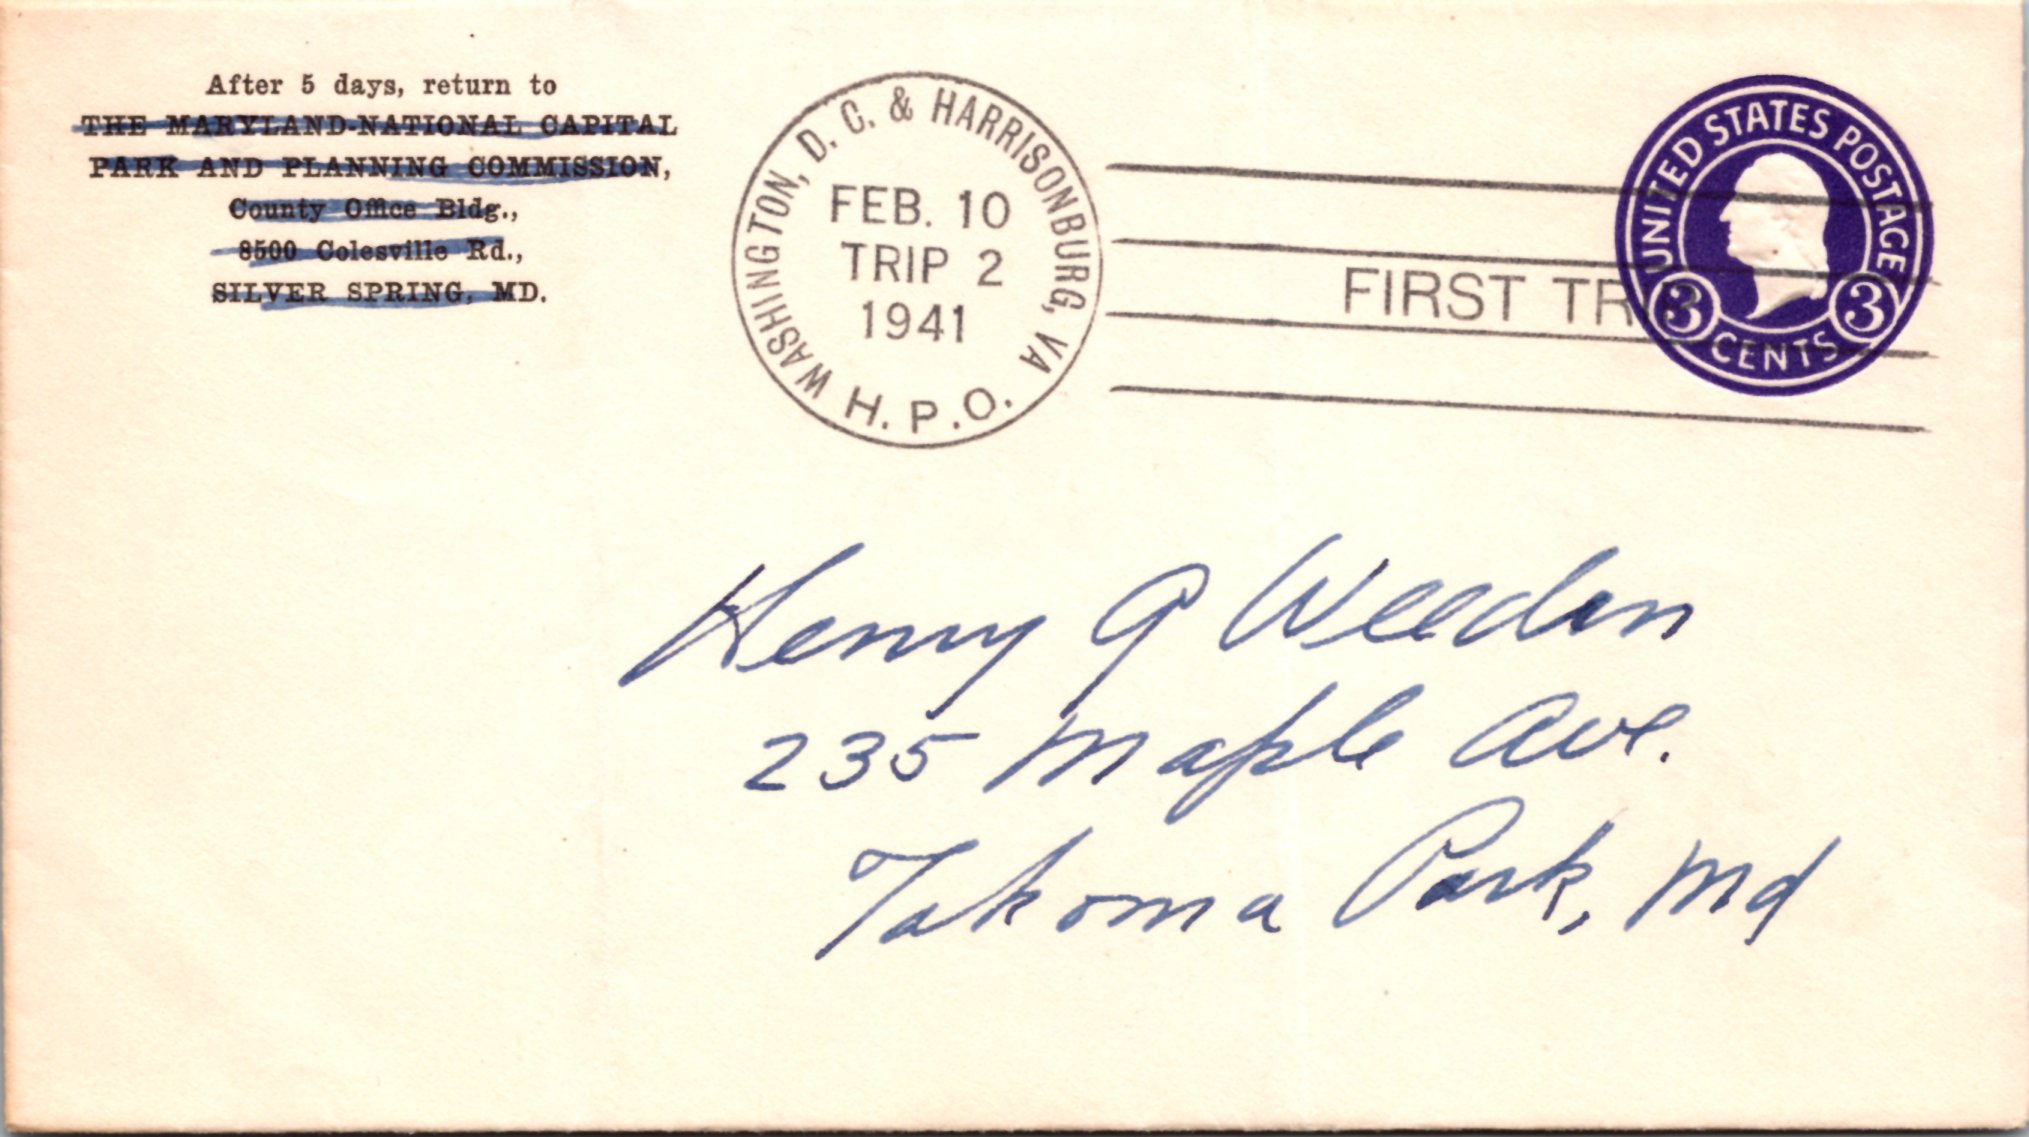 After 5 days, return to
THE MARYLAND-NATIONAL CAPITAL
PARK AND PLANNING COMMISSION,
County Office Bldg.,
8500 Colesville Rd.,
SILVER SPRING, MD.
WASHINGTON, D. C. & HARRISONBURG, VA
FEB. 10
TRIP 2
1941
H. P. O.
FIRST TRIP
UNITED STATES POSTAGE
3 CENTS 3
Henry G Weeden
235 Maple Ave.
Takoma Park, Md